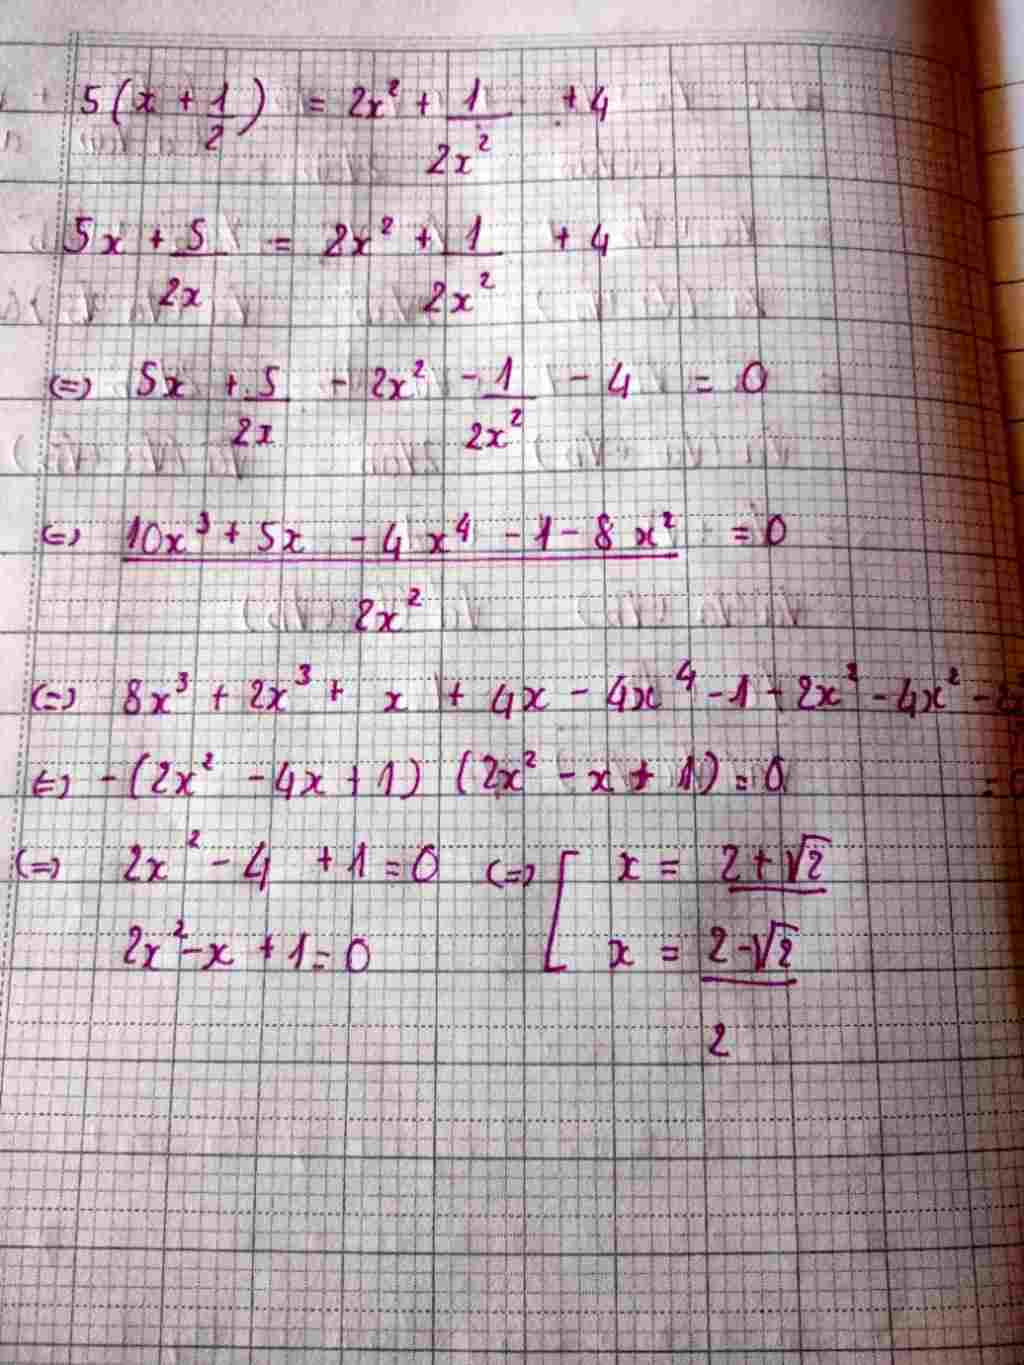 5(x + 1/2) = 2x² + 1/2x² + 4
5x + 5/2x = 2x² + 1/2x² + 4
(=) 5x + 5/2x - 2x² - 1/2x² - 4 = 0
(=) 10x³ + 5x - 4x⁴ - 1 - 8x² / 2x² = 0
(=) 8x³ + 2x³ + x + 4x - 4x⁴ - 1 - 2x² - 4x² -
(=) -(2x² - 4x + 1) (2x² - x + 1) = 0 =
(=) 2x² - 4 + 1 = 0 (=) [ x = 2 + √2
2x² - x + 1 = 0 x = 2 - √2 / 2